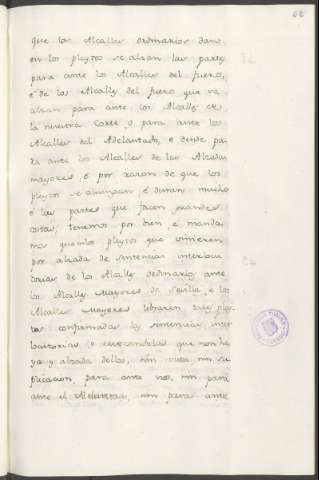 62
que los Alcalles ordinarios dan
en los pleytos se alzan las partes
para ante los Alcalles del fuero,
é de los Alcalles del fuero que se
alzan para ante los Alcalles de
la nuestra Corte, o para ante los
Alcalles del Adelantado, e dende pa
ra ante los Alcalles de las Alzadas
mayores, é por razon de que los
pleytos se aluengan é duran mucho
é las partes que facen grandes
costas; tenemos por bien, e manda
mos que los pleytos que vinieren
por alzada de sentencias interlocu
torias de los Alcalles ordinarios ante
los Alcalles Mayores de Sevilla, e los
Alcalles Mayores libraren tales pley
tos confirmadas las sentencias inter
locutorias, o revocandolas que non ha
ya y alzada dellos, nin vista nin su
plicacion para ante nos, nin para
ante el Adelantado, nin para ante